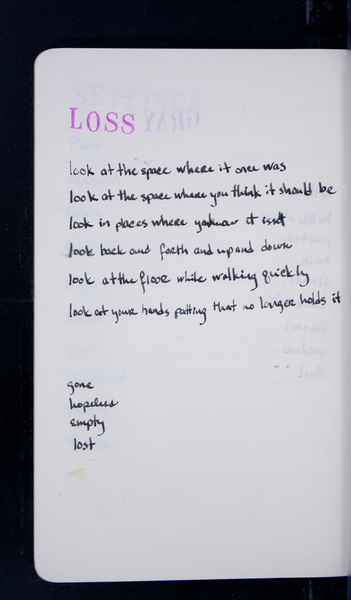 LOSS
look at the space where it once was
look at the space where you think it should be
look in places where you know it isn't
look back and forth and up and down
look at the floor while walking quickly
look at your hands patting that no longer holds it
gone
hopeless
empty
lost